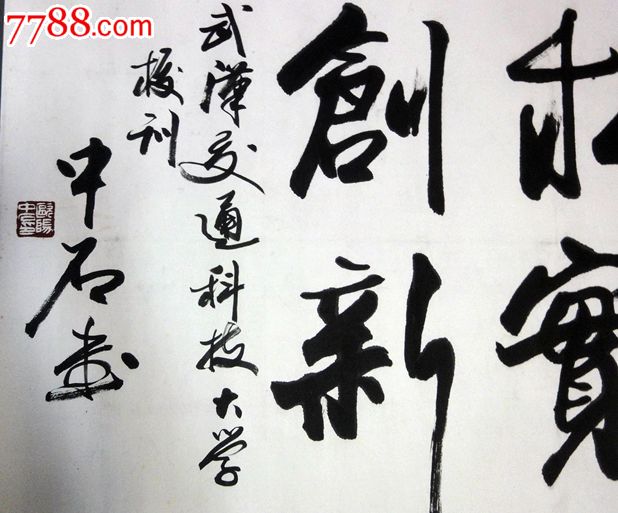 7788.com
求實
創新
武漢交通科技大学
校刊
中石书
歐陽中石